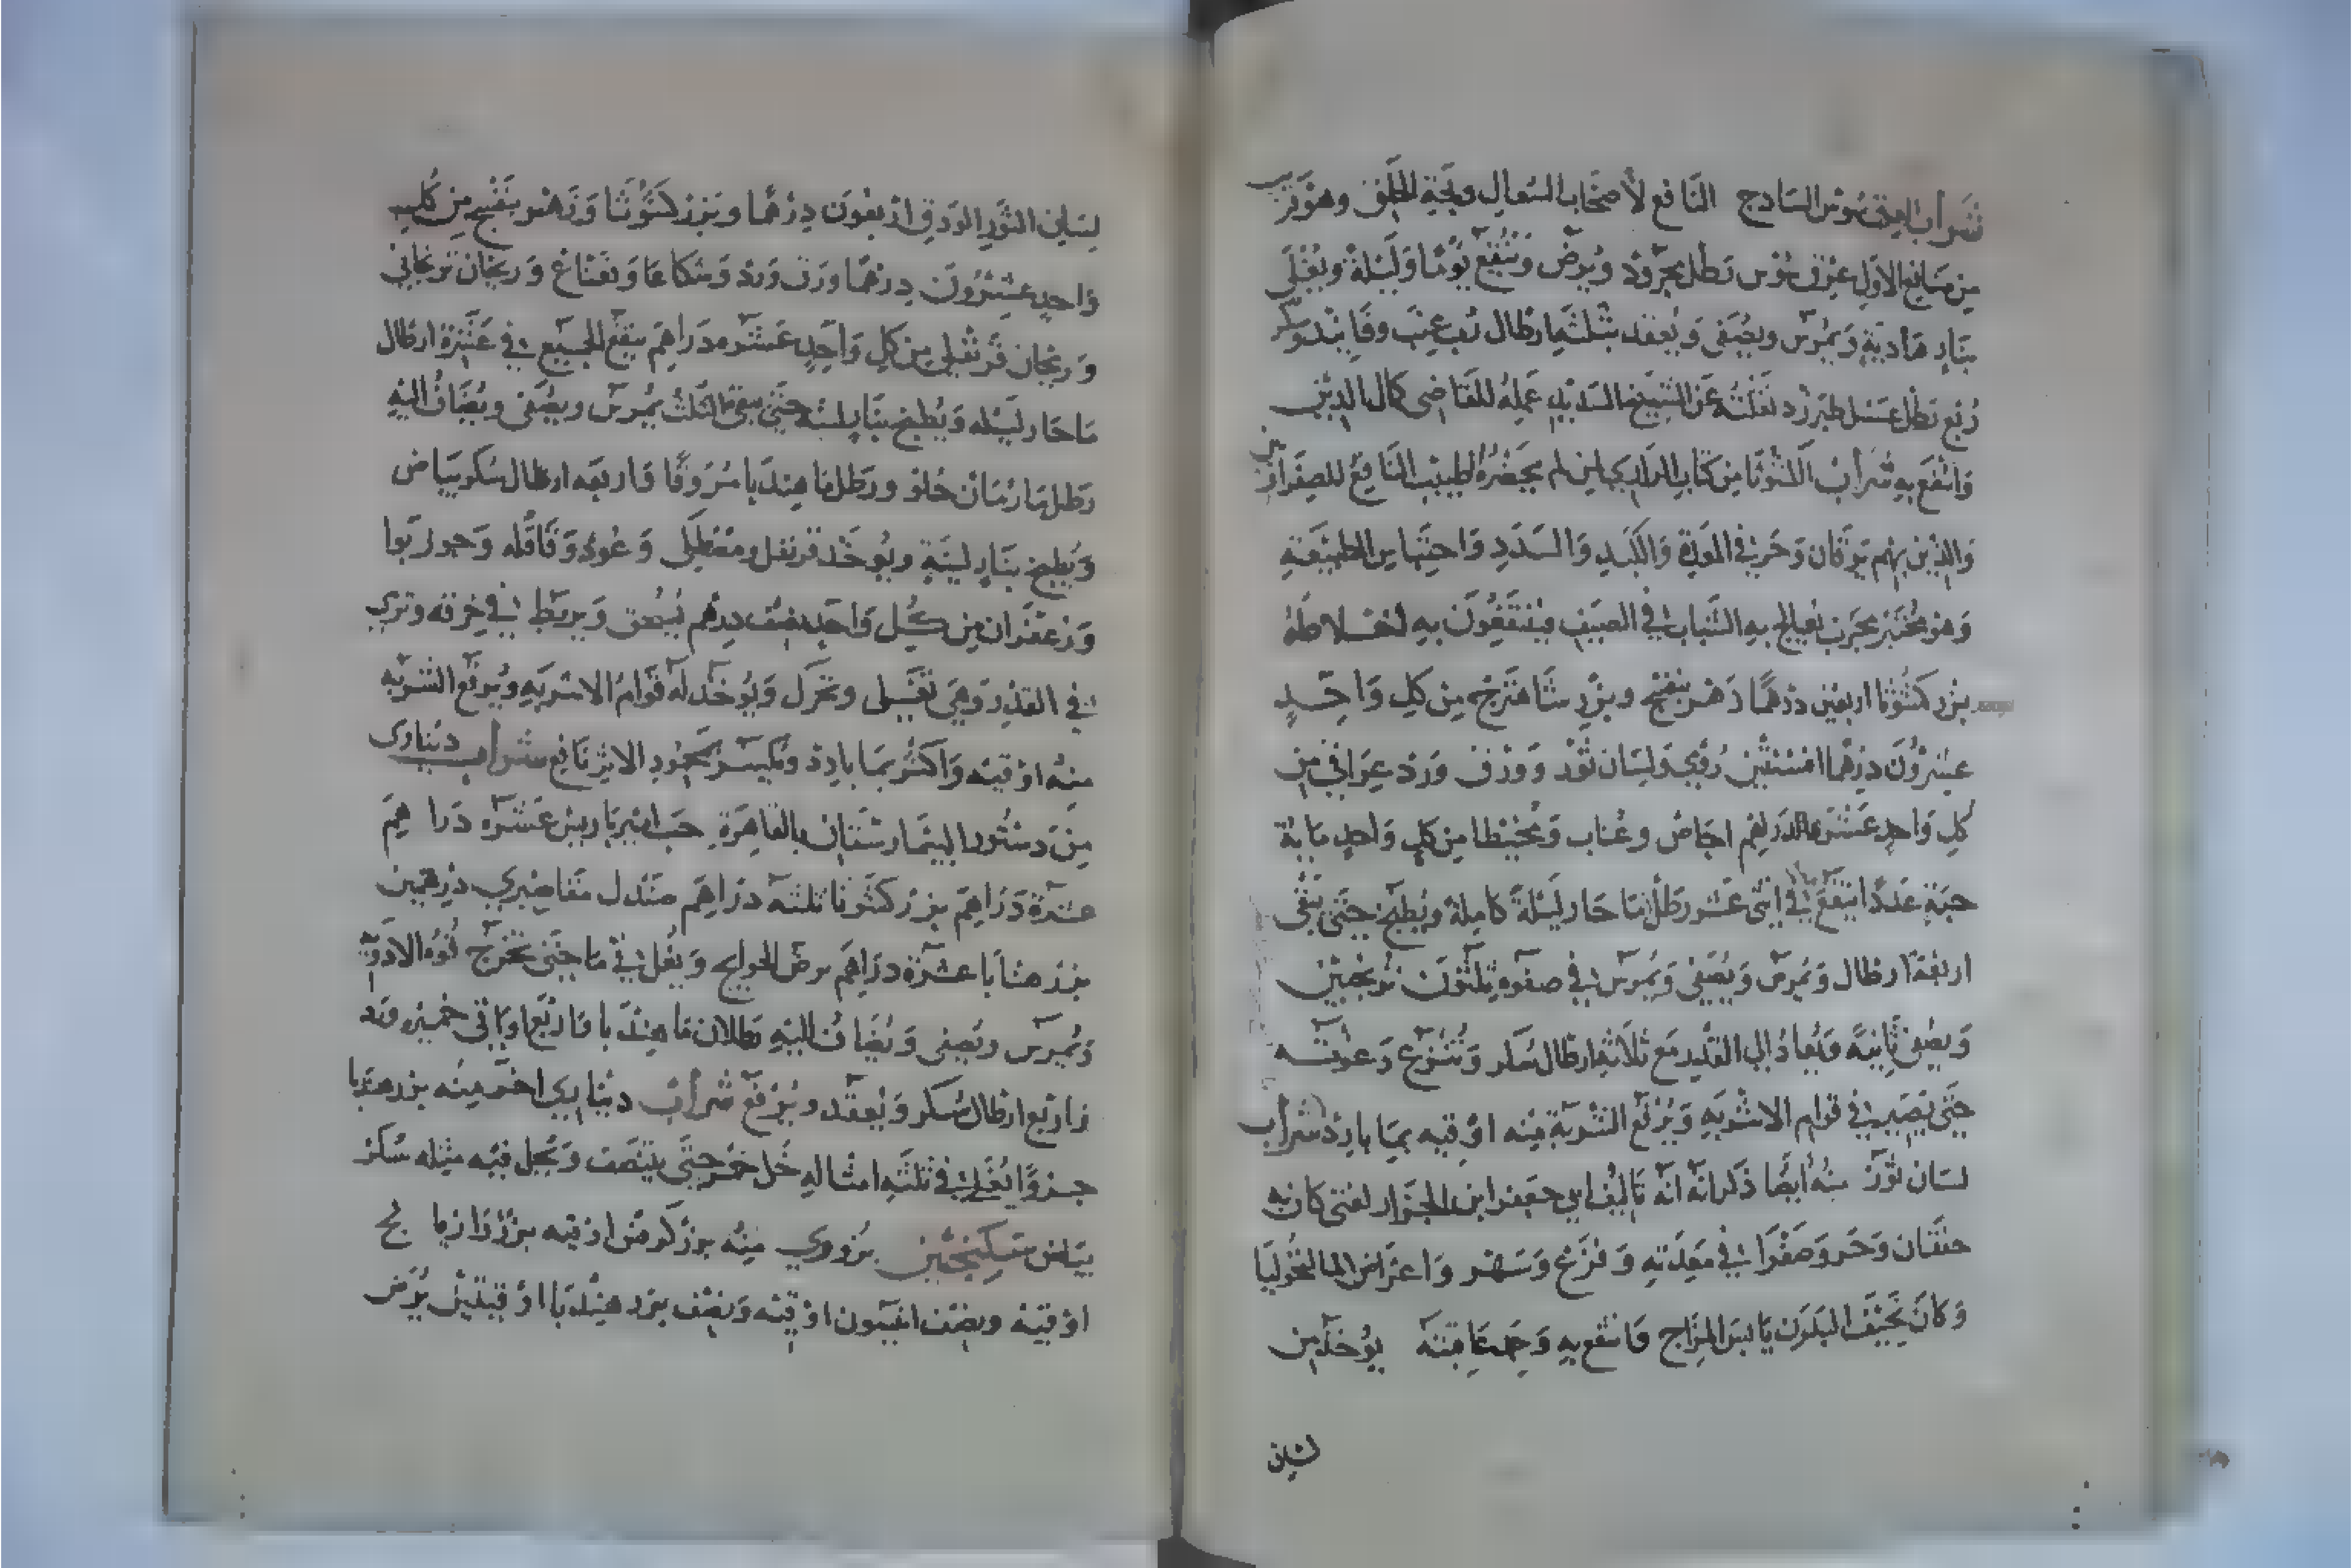 شراب العرق سوس الساذج النافع لأصحاب السعال وبحة الحلق وهو قريب
من منافع الاول عرق سوس رطل مجرود ويرض وينقع يومًا وليلة ويغلى
بنار هادية ويمرس ويصفى ويعقد بثلثة ارطال رب عنب وفانيد وسكر
ربع رطل عسل طبرزد نقلته عن الشيخ السديد عمله للقاضي كمال الدين
وانتفع به شراب الكشوثا من كتاب الرازي لمن لم يحضره الطبيب النافع للصفراويين
والذين بهم يرقان وحر في المعدة والكبد والسدد واحتباس الطبيعة
وهو مختبر مجرب يعالج به الشباب في الصيف فينتفعون به اخلاطه
بزر كشوثا اربعين درهمًا زهر بنفسج وبزر شاهترج من كل واحد
عشرون درهمًا افسنتين رومي ولسان ثور وورق ورد عراقي من
كل واحد عشرة الدراهم اجاص وعناب ومخيطا من كل واحد ماية
حبة عددًا ينقع في اثنى عشر رطل ما حار ليلة كاملة ويطبخ حتى يبقى
اربعة ارطال ويمرس ويصفى ويمرس في صفوه ثلثون ترنجبين
ويصفى ثانية ويعاد الي القدر مع ثلاثة ارطال سكر وتنزع رغوته
حتى يصير في قوام الاشربه ويرفع الشربة منه اوقيه بما بارد شراب
لسان ثور منه أيضا ذكر انه انه تاليف ابي جعفر ابن الجزار لفتى كان به
خفقان وحر وصفرا في معدته وفزع وسهر واعتراض المالنخوليا
وكان نحيف البدن يابس المزاج فانتفع به وحمد عاقبته يوخذ من
لسان
لسان الثور الورق اربعون درهما وبزر كشوثا وزهر بنفسج من كل
واحد عشرون درهما ورق ورد وشكاعا ونعناع وريحان ترنجاني
وريحان قرنفلي من كل واحد عشره دراهم ينقع الجميع في عشرة ارطال
ما حار ليله ويطبخ بنار لينه حتى يبقى الثلث يمرس ويصفى ويضاف اليه
رطل ما رمان حلو ورطل ما هندبا مروقا واربعه ارطال سكر بياض
ويطبخ بنار لينة ويوخذ قرنفل ومصطكى وعود وقاقله وجوز بوا
وزعفران من كل واحد نصف درهم يسحق ويربط في خرقه وترمى
في القدر وهي تغسل وتحرك ويوخذ له قوام الاشربه ويرفع الشربه
منه اوقيه واكثر بما بارد وتكسر بجود الاثر نافع شراب ديناري
من دستور البيمارستان بالقاهرة حب امير باريس عشره دراهم
عشرة دراهم بزر كشوثا ثلثه دراهم صندل مقاصيري درهمين
بزر هندبا عشرة دراهم يرض الحوايج ويغلى في ما حتى تخرج قوة الادوية
ويمرس ويصفى ويضاف اليه رطلان ما هندبا واربع اواقي خميره ورد
واربع ارطال سكر ويعقد ويرفع شراب ديناري اخر منه بزر هندبا
جزوًا يغلى في ثلثه امثاله خل خمر حتى ينصف ويجعل فيه مثله سكر
بياض سكنجبين بزوري منه بزر كرفس اوقيه بزر رازيانج
اوقية ونصف انيسون اوقية ونصف بزر هندبا اوقيتين يرض